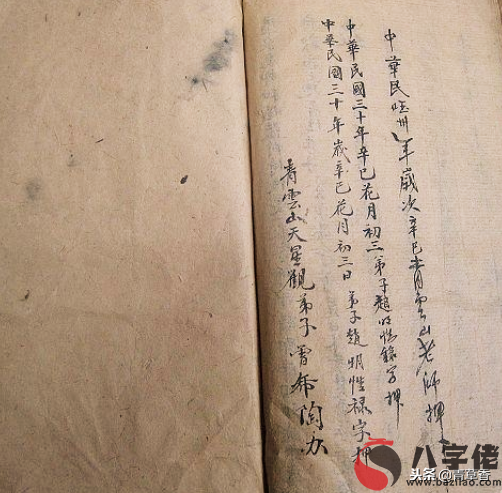 中華民國卅年歲次辛巳青雲山老師押
中華民國三十年辛巳花月初三弟子趙明性錄字押
中華民國三十年歲辛巳花月初三日弟子趙明性禄字押
青雲山天星觀弟子曾希陶办
八字佬
www.bazilao.com
头条@青草香